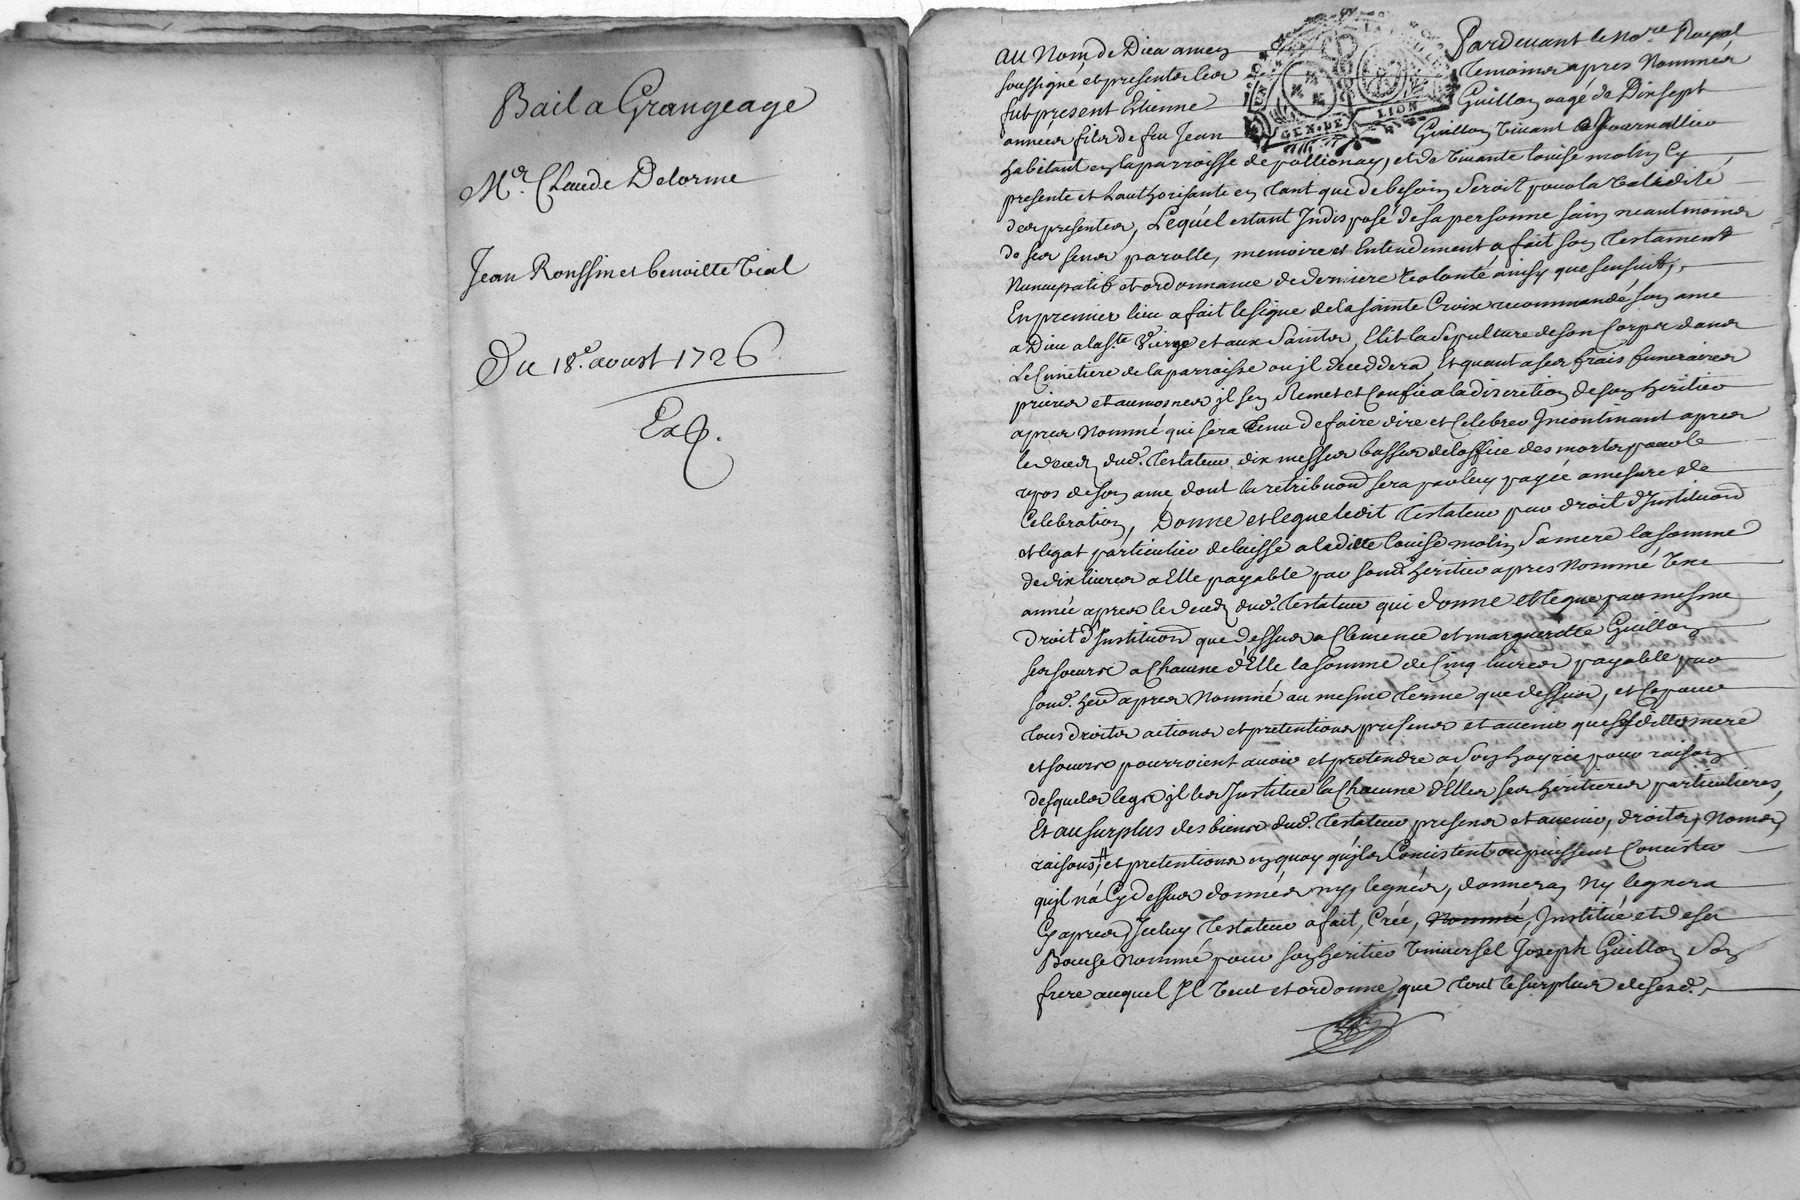 Bail a Grangeage
Mr. Claude Delorme
Jean Ronssin et benoitte Vial
Du 18e. aoust 1726
Exp.
Au Nom de Dieu amen Pardevant le Nore. Royal
soussigné et presents les temoins apres Nommés
fut present Etienne Guillon aagé de Dixsept
années fils de feu Jean Guillon vivant Journallier
GEN. DE LION
habitant en la parroisse de pollionay, et de vivante louise molin Cy
presente et Lauthorisante en tant que de besoin Seroit pour la validité
des presentes, Lequel estant Indisposé de sa personne sain neantmoins
de ses sens parolle, memoire et Entendement a fait son Testament
Nuncupatif et ordonnance de derniere volonté ainsy que sensuit,
En premier lieu a fait le signe de la sainte Croix recommandé son ame
a Dieu a la ste. Vierge et aux Saints, Elit la sepulture de son Corps dans
Le Cimetiere de la parroisse ou jl deceddera Et quant a ses frais funeraires
prieres et aumosnes jl sen Remet et Confie a la discretion de son heritier
apres Nommé qui sera tenu de faire dire et Celebrer Incontinant apres
le deces dud. testateur dix messes basses de loffice des morts pour le
repos de son ame, dont la retribuon sera par luy payée a mesure de
Celebration, Donne et legue ledit testateur par droit dInstituon
et legat particulier delaisse a la ditte louise molin Sa mere la somme
de dix livres a Elle payable par sond heritier apres Nommé Une
année apres le deces dud. testateur qui donne et legue par mesme
droit dInstituon que dessus a Clemence et margueritte Guillon
ses soeurs a Chacune dElle la somme de Cinq livres payable par
sond. hér apres Nommé au mesme terme que dessus, et Ce pour
tous droits actions et pretentions presens et avenir que sesdittes mere
et soeurs pourroient avoir et pretendre a son hoyrie pour raison
desquels legs jl les Institue la Chacune dElles ses heritieres particulieres,
Et au surplus des biens dud. testateur presens et avenir, droits, Noms,
raisons, # et pretentions en quoy qujls Consistent ou puissent Consister
qujl na Cy dessus donnés ny legués, donnera ny leguera
Cy apres Jceluy testateur a fait, Créé, Nommé, Institué et de sa
Bouche Nommé pour son heritier Universel Joseph Guillon Son
frere auquel Jl veut et ordonne que tout le surplus de sesd.